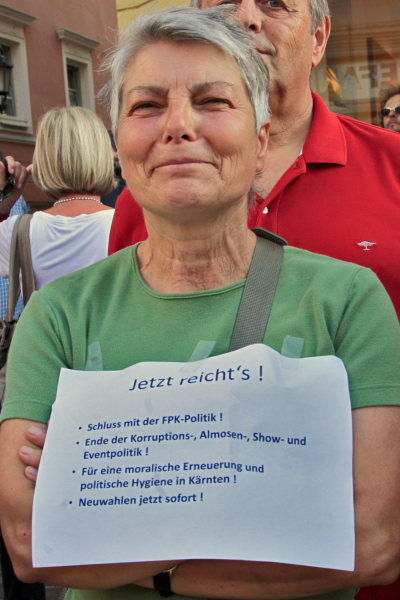 Jetzt reicht's !
• Schluss mit der FPK-Politik !
• Ende der Korruptions-, Almosen-, Show- und
Eventpolitik !
• Für eine moralische Erneuerung und
politische Hygiene in Kärnten !
• Neuwahlen jetzt sofort !